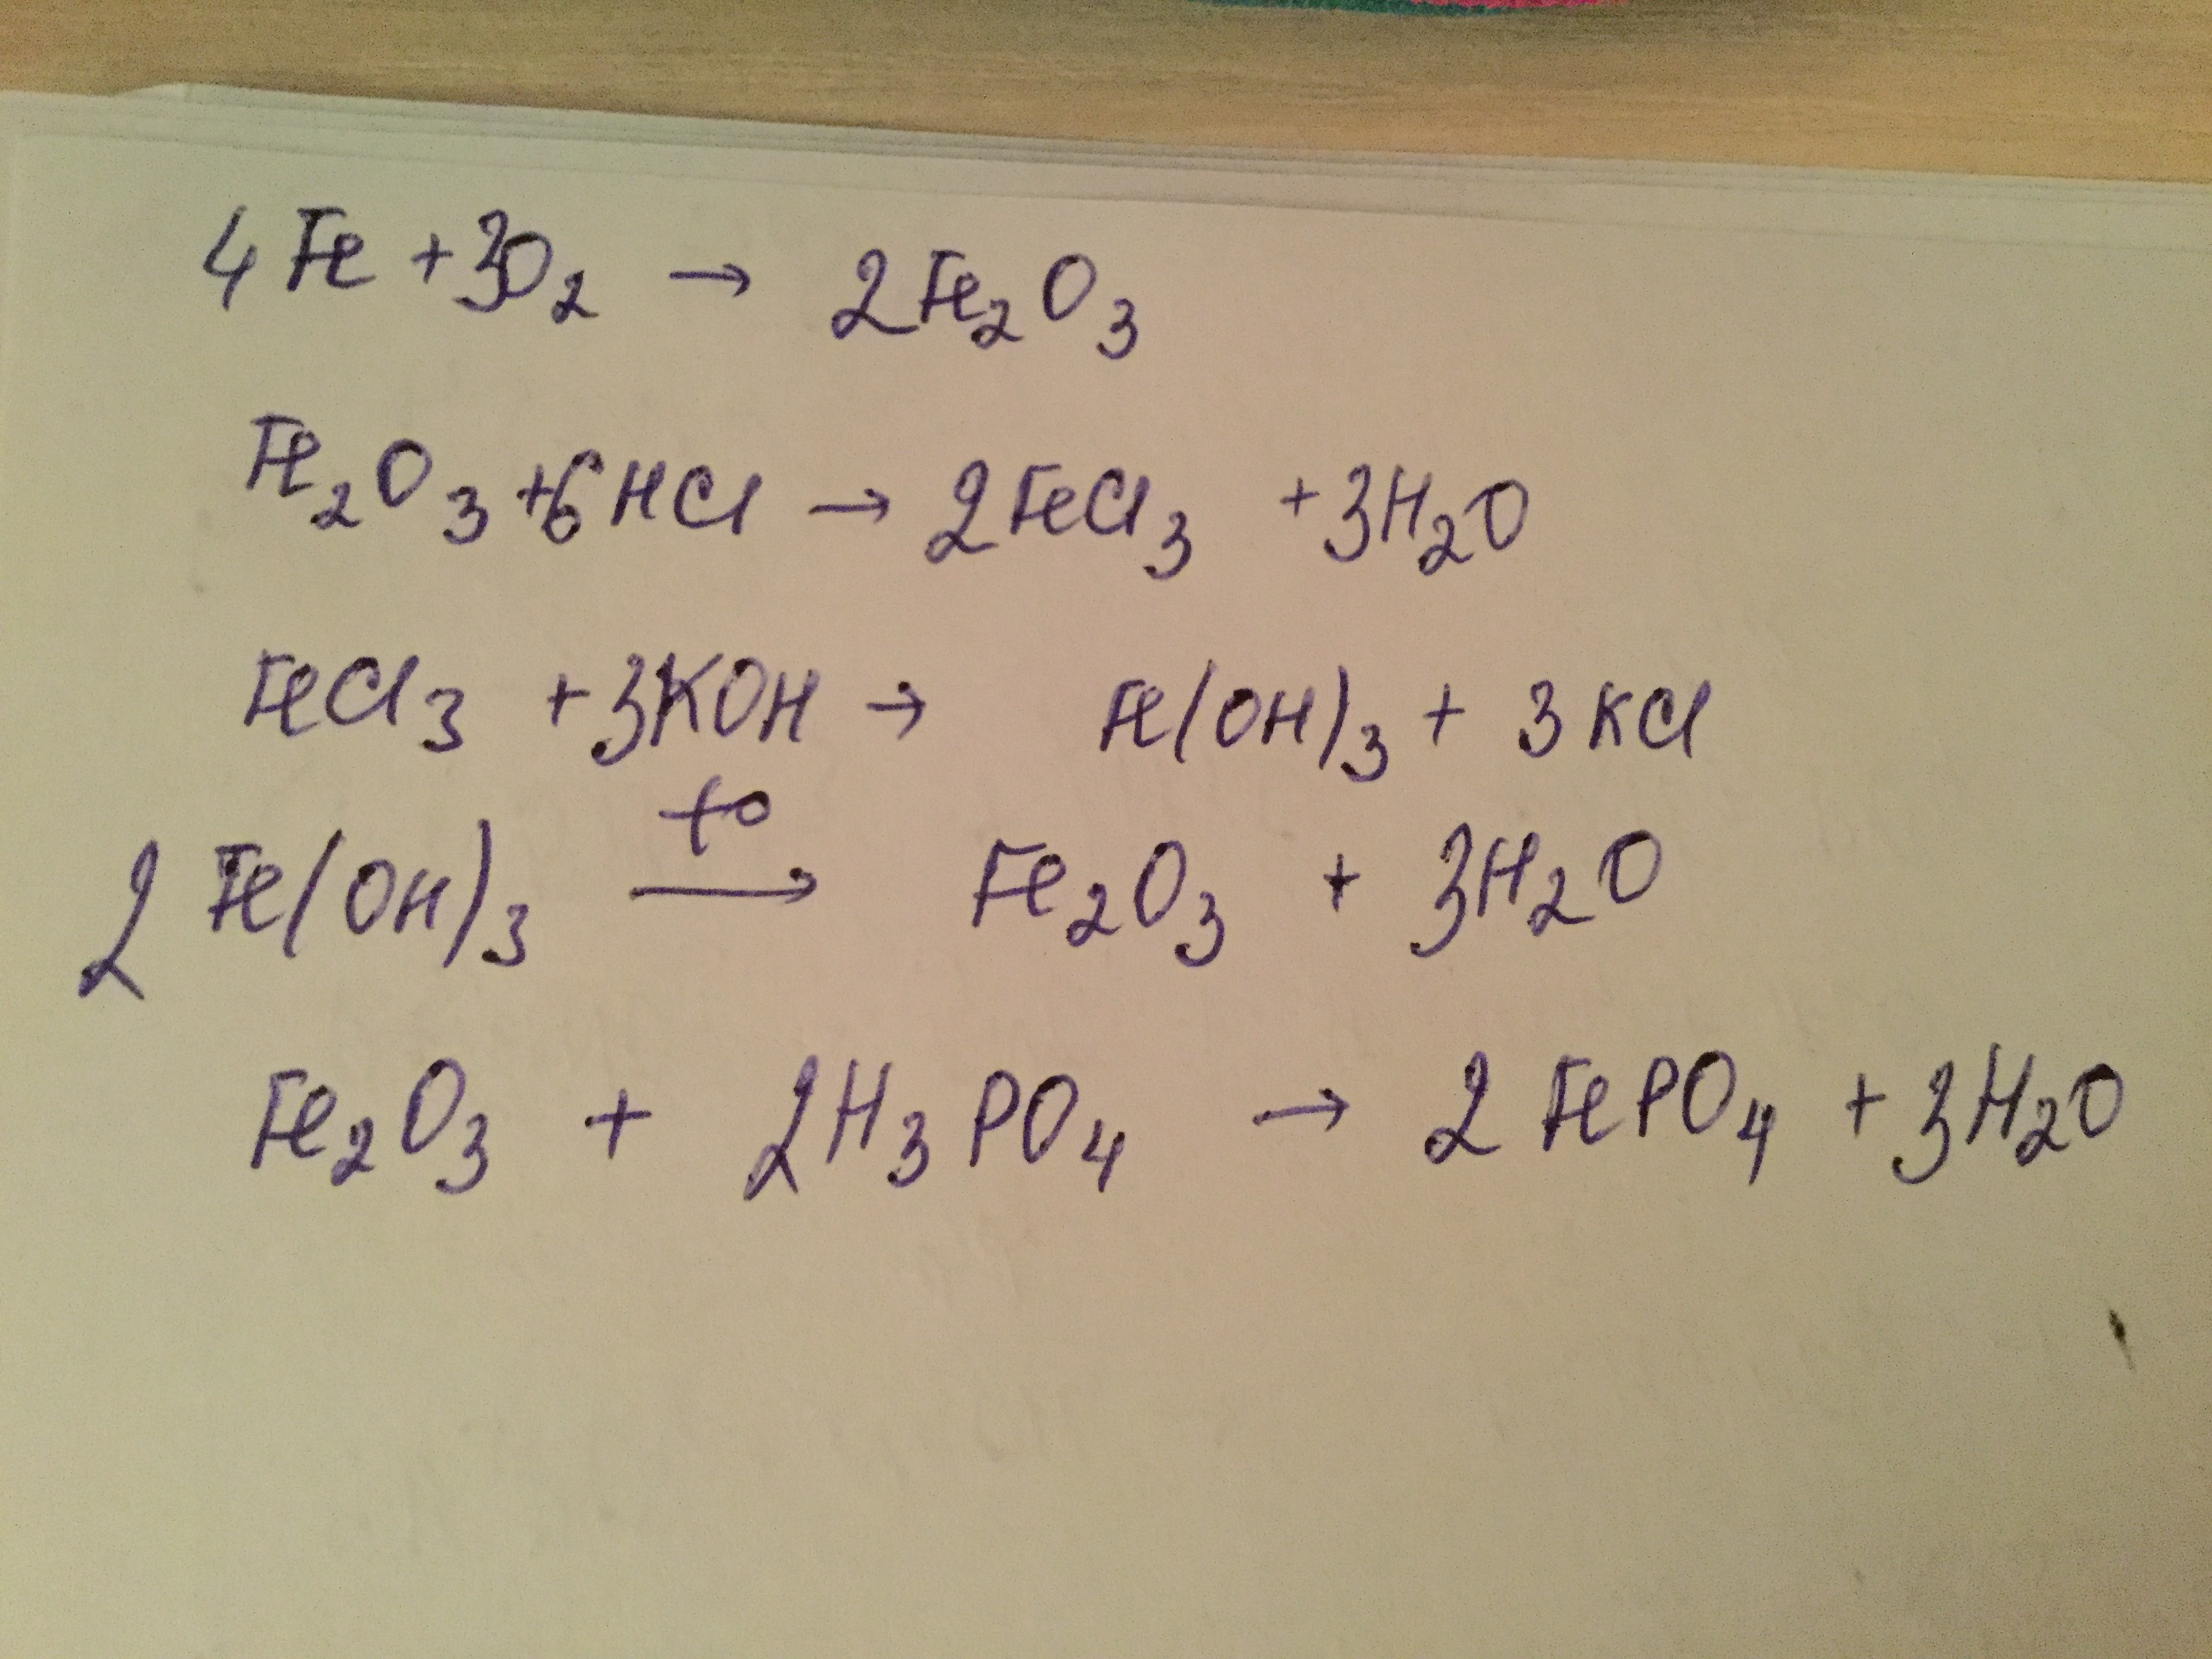 4Fe + 3O₂ → 2Fe₂O₃
Fe₂O₃ + 6HCl → 2FeCl₃ + 3H₂O
FeCl₃ + 3KOH → Fe(OH)₃ + 3KCl
2Fe(OH)₃ —t°→ Fe₂O₃ + 3H₂O
Fe₂O₃ + 2H₃PO₄ → 2FePO₄ + 3H₂O